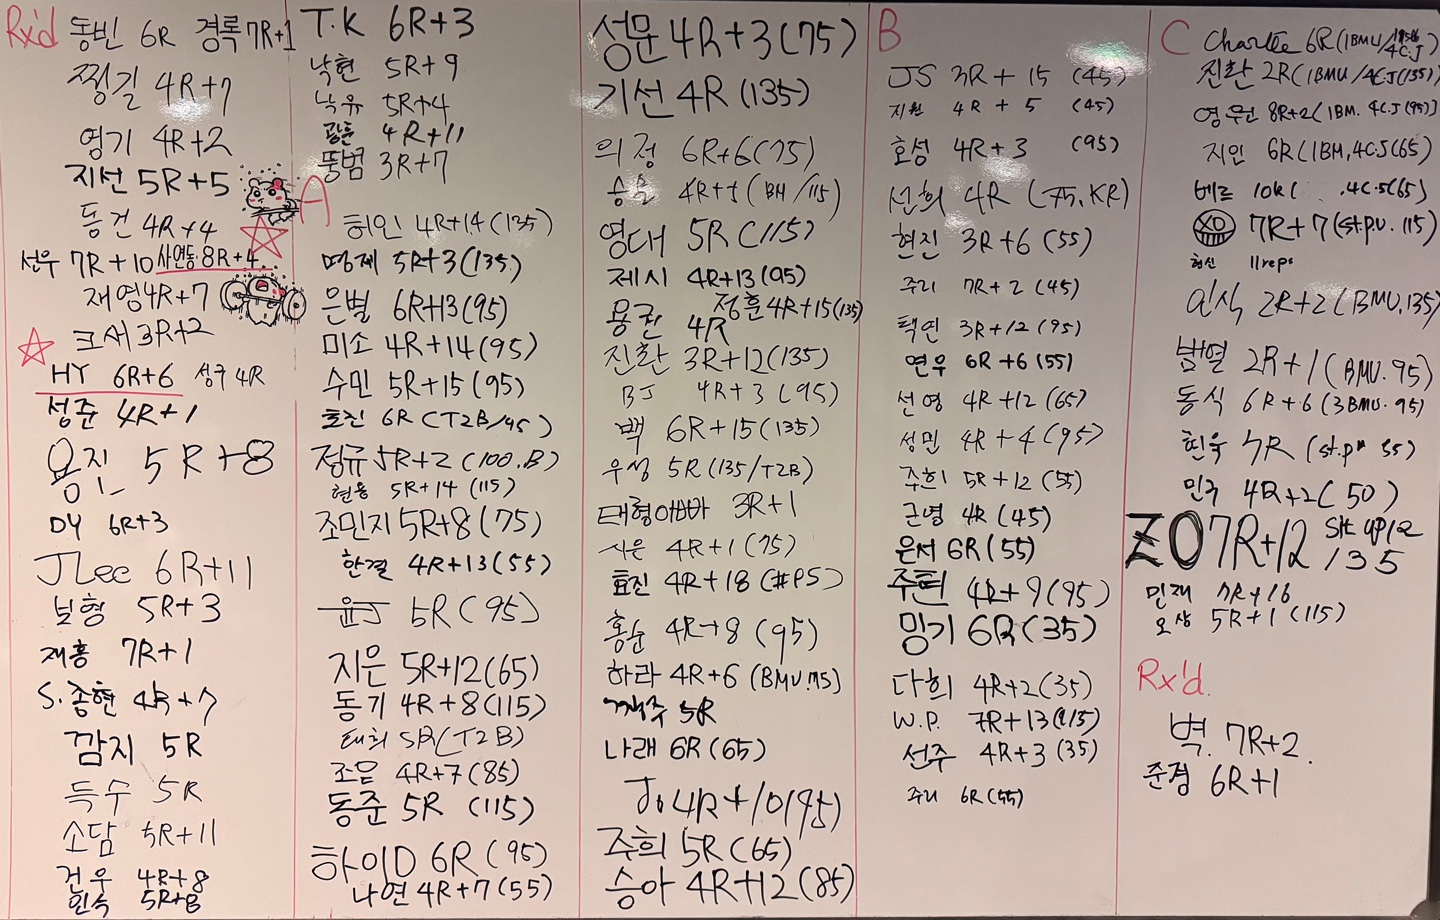 Rx'd 동빈 6R 경록 7R+1
찡길 4R+7
영기 4R+2
지선 5R+5
동건 4R+4
선우 7R+10 사연동 8R+4
재영 4R+7
크서 3R+2
HY 6R+6 성구 4R
성준 4R+1
용진 5R+8
DY 6R+3
JLee 6R+11
보형 5R+3
재홍 7R+1
S.종현 4R+7
깜지 5R
득수 5R
소담 5R+11
건우 4R+8
힌숙 5R+8
T.K 6R+3
낙현 5R+9
낙유 5R+4
광훈 4R+11
뚱범 3R+7
A
허인 4R+14(135)
명제 5R+3(135)
은별 6R+13(95)
미소 4R+14(95)
수민 5R+15(95)
효진 6R(T2B/95)
정규 5R+2(100.B)
현용 5R+14(115)
조민지 5R+8(75)
한결 4R+13(55)
윤J 5R(95)
지은 5R+12(65)
동기 4R+8(115)
태희 5R(T2B)
조은 4R+7(85)
동준 5R (115)
하이D 6R(95)
나연 4R+7(55)
성문 4R+3(75)
기선 4R(135)
의정 6R+6(75)
승훈 4R+5(BM/115)
영대 5R(115)
제시 4R+13(95)
정훈 4R+15(135)
용권 4R
진환 3R+12(135)
BJ 4R+3(95)
백 6R+15(135)
우성 5R(135/T2B)
태형아빠 3R+1
시은 4R+1(75)
효진 4R+18(#PS)
홍순 4R+8(95)
하라 4R+6(BMU.75)
5R
나래 6R(65)
Jo 4R+10(95)
주희 5R(65)
승아 4R+12(85)
B
JS 3R+15 (45)
지원 4R+5 (45)
효성 4R+3 (95)
선희 4R (75.KR)
현진 3R+6(55)
주리 7R+2(45)
택연 3R+12(95)
연우 6R+6(55)
선영 4R+12(65)
성민 4R+4(95)
주희 5R+12(55)
근영 4R(45)
은서 6R(55)
주현 4R+9(95)
밍기 6R(35)
다희 4R+2(35)
W.P. 7R+13(115)
선주 4R+3(35)
주리 6R(55)
C Charlie 6R(1BMU/4C.J)
진환 2R(1BMU/4C.J(135)
영원 8R+2(1BM. 4C.J(95))
지인 6R(1BM,4C.J(65)
베르 10R( .4C.J(65)
XO 7R+7(st.p.u. 115)
형신 11reps
인식 2R+2(BMU,135)
범열 2R+1(BMU.95)
동식 6R+6(3BMU.95)
현욱 7R(st.pu 55)
민구 4R+2(50)
ZO 7R+12 Sit up/2
135
민재 7R+16
오상 5R+1(115)
Rx'd.
벽. 7R+2.
준경 6R+1